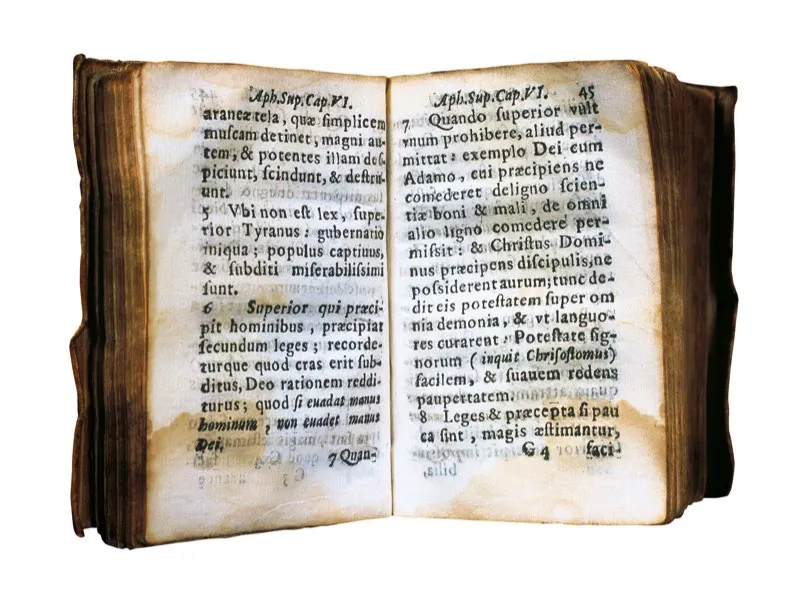 Aph.Sup.Cap.VI.
araneæ tela, quæ simplicem
muscam detinet, magni au-
tem, & potentes illam des-
piciunt, scindunt, & destru-
unt.
5 Vbi non est lex, supe-
rior Tyranus: gubernatio
iniqua; populus captiuus,
& subditi miserabilissimi
sunt.
6 Superior qui præci-
pit hominibus, præcipiat
secundum leges; recorde-
turque quod cras erit sub-
ditus, Deo rationem reddi-
turus; quod si euadat manus
hominum, non euadet manus
Dei.
7 Quan-
Aph.Sup.Cap.VI. 45
7. Quando superior vult
vnum prohibere, aliud per-
mittat: exemplo Dei eum
Adamo, cui præcipiens ne
comederet deligno scien-
tiæ boni & mali, de omni
alio ligno comedere per-
missit: & Christus Domi-
nus præcipens discipulis, ne
possiderent aurum; tunc de-
dit eis potestatem super om
nia demonia, & vt languo-
res curarent: Potestate sig-
norum (inquit Chrisostomus)
facilem, & suauem redens
paupertatem.
8 Leges & præcepta si pau
ca sint, magis æstimantur,
G 4 faci-